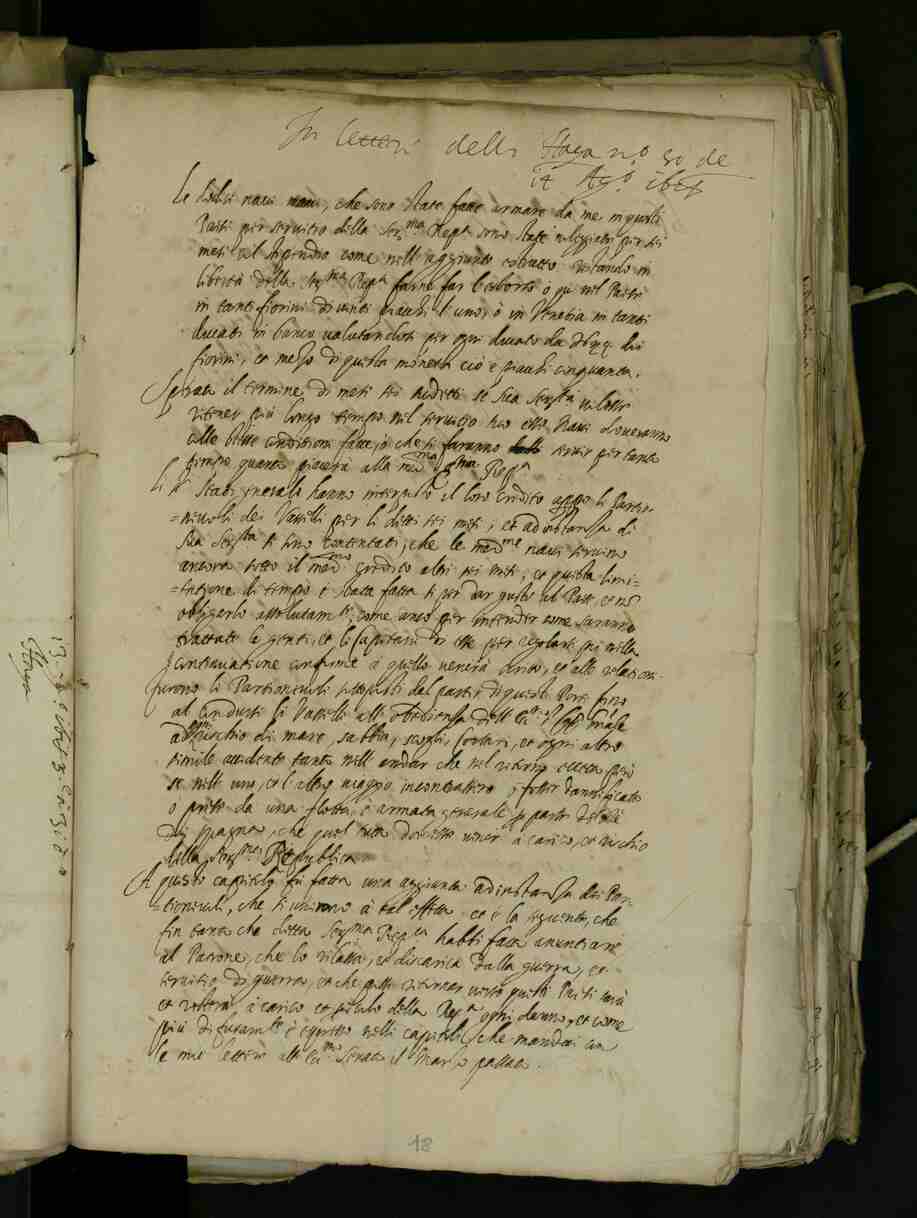 In lettere dell' Haga n.º 50 de
Ag.º
Le dodici navi, che sono state fatte armare da me in questi
Paesi per servitio della Ser.ma Rep.ca sono state noleggiate per sei
mesi col stipendio come nell' aggiunto estratto restando in
libertà della Ser.ma Rep.ca farne far l'esborso ò quì nel Paese
in tanti fiorini di vinti piacchi l'uno, ò in Venetia in tanti
ducati in banco valutandosi per ogni ducato da doi
fiorini, et mezo di questa moneta cio è piacchi cinquanta.
Spirata il termine di mesi sei sudetti se Sua Ser.tà volesse
ritener più longo tempo nel servitio suo esse Navi doveranno
alle stesse conditioni fatte, ò che si faranno servir per tanto
tempo quanto piacerà alla med.ma Ser.ma Rep.ca
Li ss.ri Stati generali hanno interposto il loro credito appo li Partio-
=nevoli dei Vasselli per li detti sei mesi, et ad instanza di
Sua Ser.tà si sono contentati, che le med.me navi servino
ancora sotto il med.mo credito altri sei mesi; et questa limi-
=tatione di tempo è stata fatta sì per dar gusto al Paese, et nõ
obligarlo assolutam.te, come anco per intender come saranno
trattate le genti, et li Capitani di esse per regolarsi poi nella
continuatione conforme à quello venirà scritto, et alle relationi.
furono li Partionevoli sottoposti dal partir di questi Porti fino
al condursi li Vasselli all' obedienza dell' Ecc.mo
al rischio di mare, sabbia, scogli, Corsari, et ogni altro
simile accidente tanto nell' andar che nel ritorno eccetto però
se nell' uno, et l'altro viaggio incontrassero, ò fosser danneggiate
o prese da una flotta, ò armata generale p parte del Rè
di Spagna, che quel tutto dovesse venir à carico, et rischio
della Ser.ma Republica
A questo capitolo fu fatta una aggiunta ad instanza dei Par-
=tionevoli, che si unirono à tal effetto et è la seguente, che
fin tanto che detta Ser.ma Rep.ca habbi fatto annuntiare
al Patrone, che lo rilassa, et discarica dalla guerra, et
servitio di guerra, et che possi ritornar verso questi Paesi sarà
et resterà à carico et pericolo della Rep.ca ogni danno, et come
più diffusam.te è espresso nelli capitoli, che mandai con
le mie lettere all' Ecc.mo Senato il Marzo passato.
18